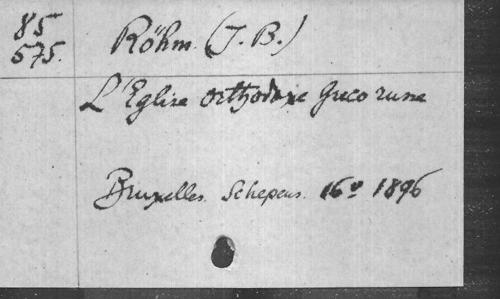 85
575.
Röhm. (J. B.)
L'Eglise orthodoxe Greco russe
Bruxelles. Schepens. 16º 1896